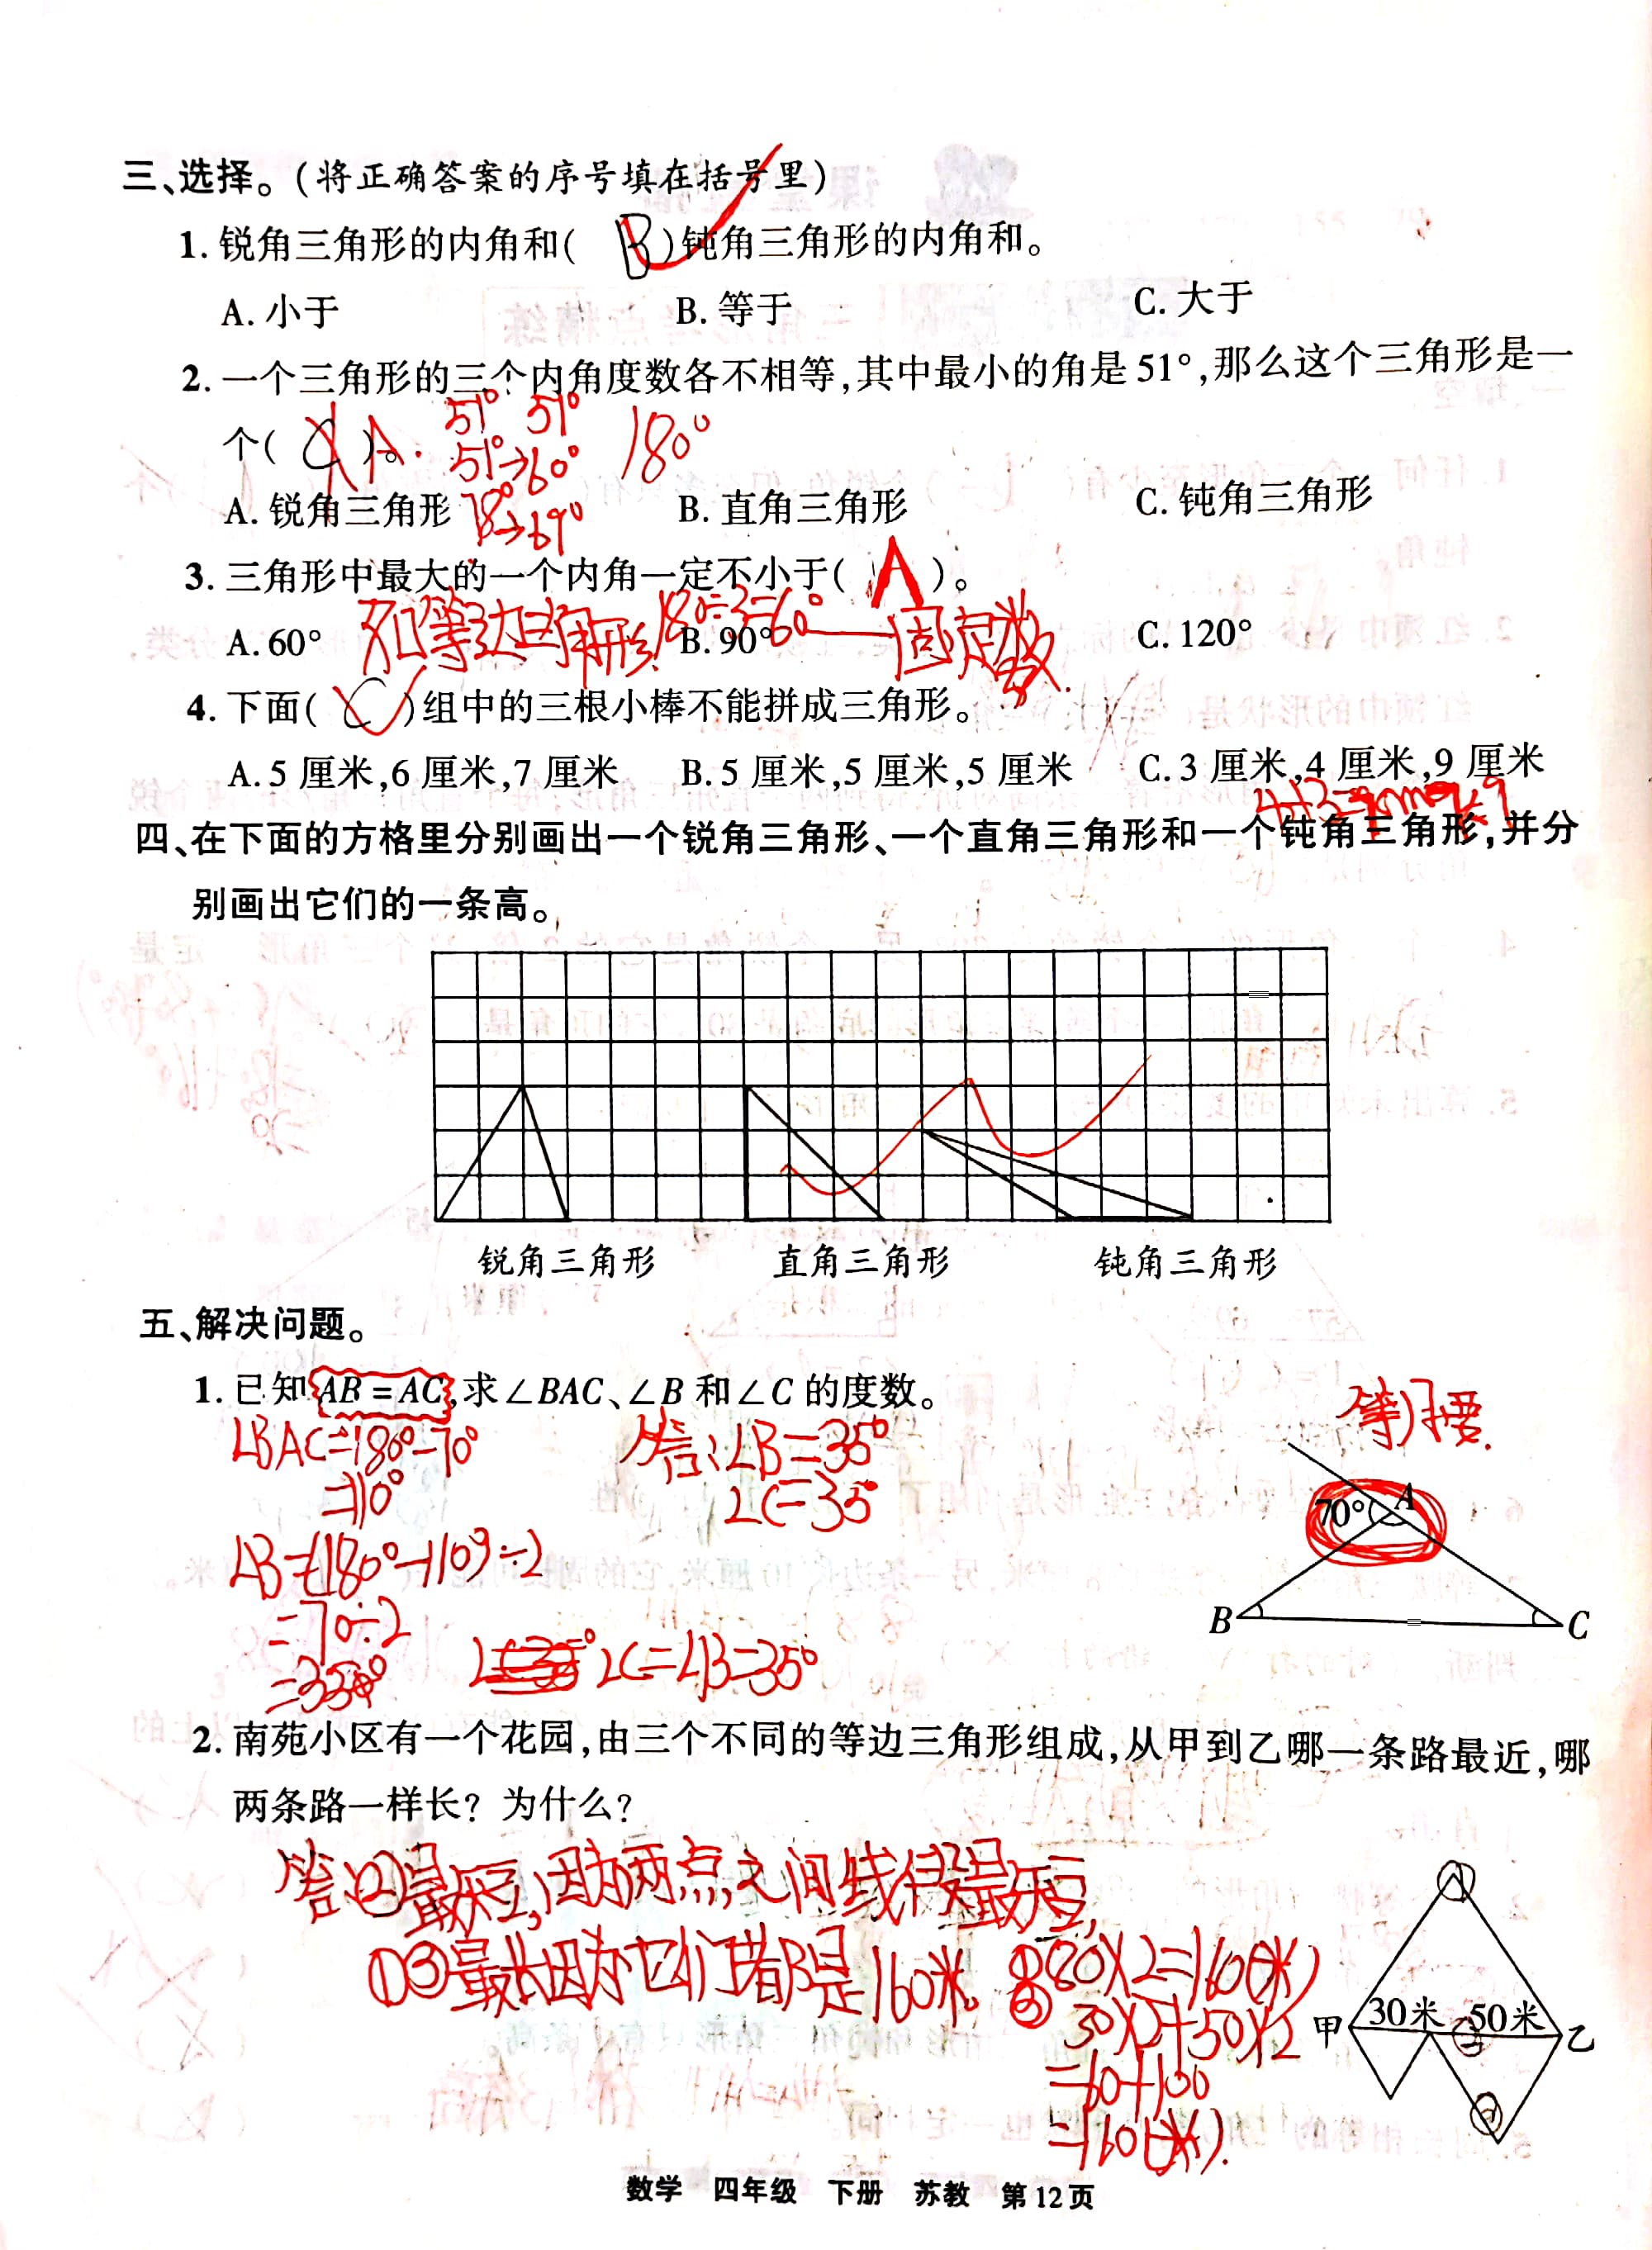 三、选择。(将正确答案的序号填在括号里)
1. 锐角三角形的内角和( B )钝角三角形的内角和。
A. 小于 B. 等于 C. 大于
2. 一个三角形的三个内角度数各不相等,其中最小的角是 51°,那么这个三角形是一
51° 51°
个( C )。 A. 180°
51°→60°
A. 锐角三角形 B. 直角三角形 C. 钝角三角形
78°→69°
3. 三角形中最大的一个内角一定不小于( A )。
A. 60° B. 90° C. 120°
等边三角形 180÷3=60° 固定数
4. 下面( C )组中的三根小棒不能拼成三角形。
A. 5 厘米,6 厘米,7 厘米 B. 5 厘米,5 厘米,5 厘米 C. 3 厘米,4 厘米,9 厘米
四、在下面的方格里分别画出一个锐角三角形、一个直角三角形和一个钝角三角形,并分
别画出它们的一条高。
锐角三角形 直角三角形 钝角三角形
五、解决问题。
1. 已知 AB = AC,求∠BAC、∠B 和∠C 的度数。
∠BAC=180°-70°
=110°
答:∠B=35°
∠C=35°
∠B=(180°-110°)÷2
=70÷2
=35°
∠C=∠B=35°
70° A
B C
2. 南苑小区有一个花园,由三个不同的等边三角形组成,从甲到乙哪一条路最近,哪
两条路一样长? 为什么?
答:②最短,因为两点之间线段最短,
①③最长因为它们都是160米。
①80×2=160(米)
③30×2+50×2
=60+100
=160(米).
①
甲 30米 50米 乙
②
③
数学 四年级 下册 苏教 第12页